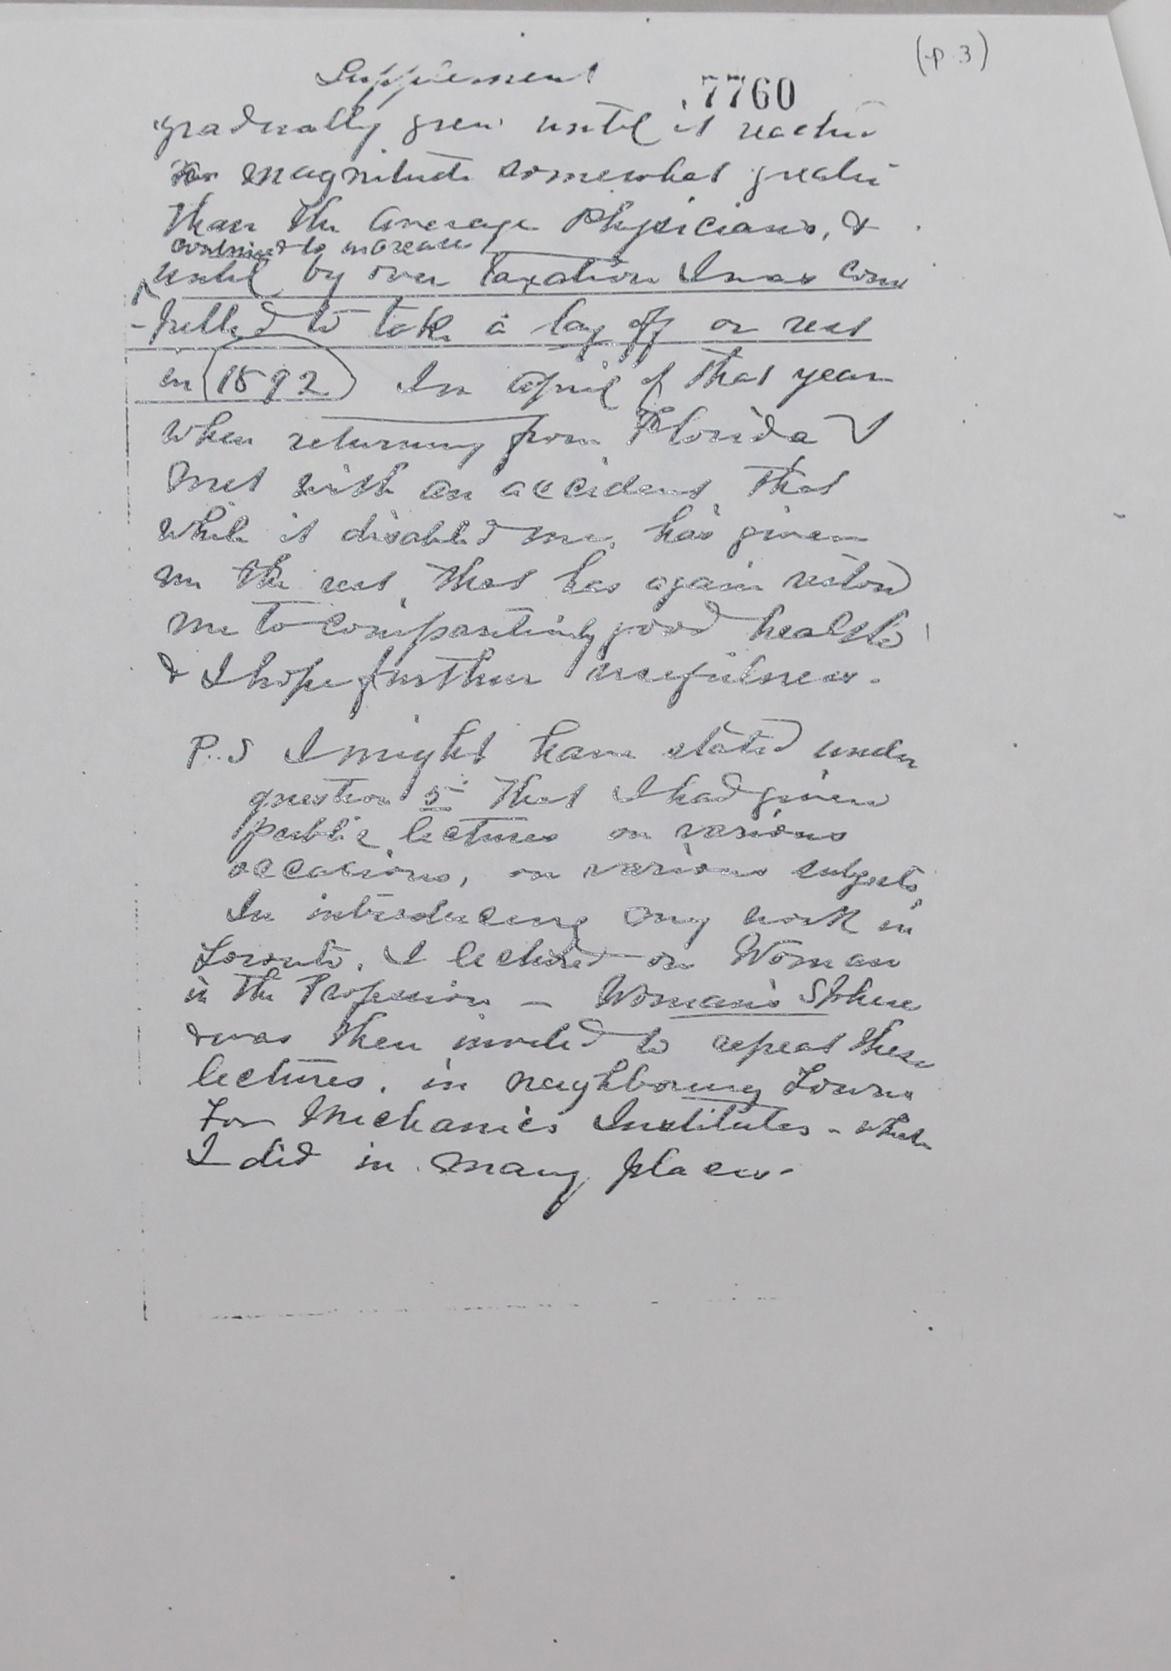 (p. 3)
Supplement
7760
gradually grew until it reached
magnitude somewhat greater
than the average Physicians, &
continued to increase
until by over taxation I was com
-pelled to take a lay off or rest
in 1892 In April of that year
when returning from Florida I
met with an accident that
while it disabled me, has given
me the rest that has again restored
me to comparatively good health
& I hope further usefulness.
P.S I might have stated under
question 5 that I had given
public lectures on various
occasions, on various subjects
In introducing my work in
Toronto, I lectured on Woman
in the Profession - Woman's Sphere
& was then invited to repeat these
lectures, in neighboring Towns
For Mechanics Institutes - which
I did in many places.